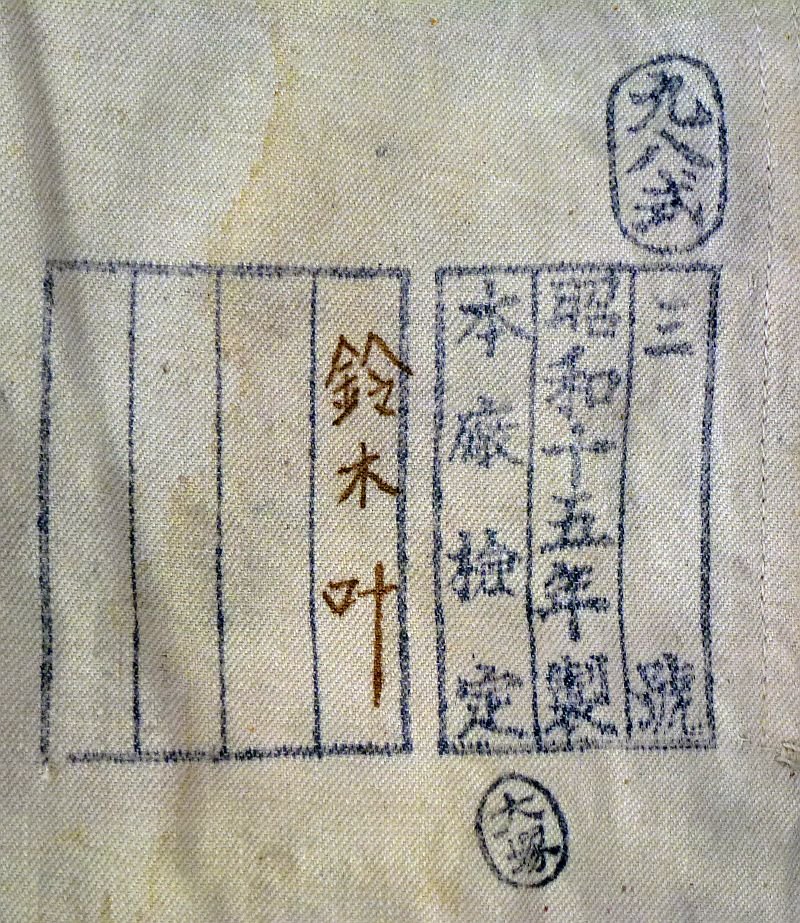 九八式
三號
昭和十五年製
本廠検定
大塚
鈴木叶